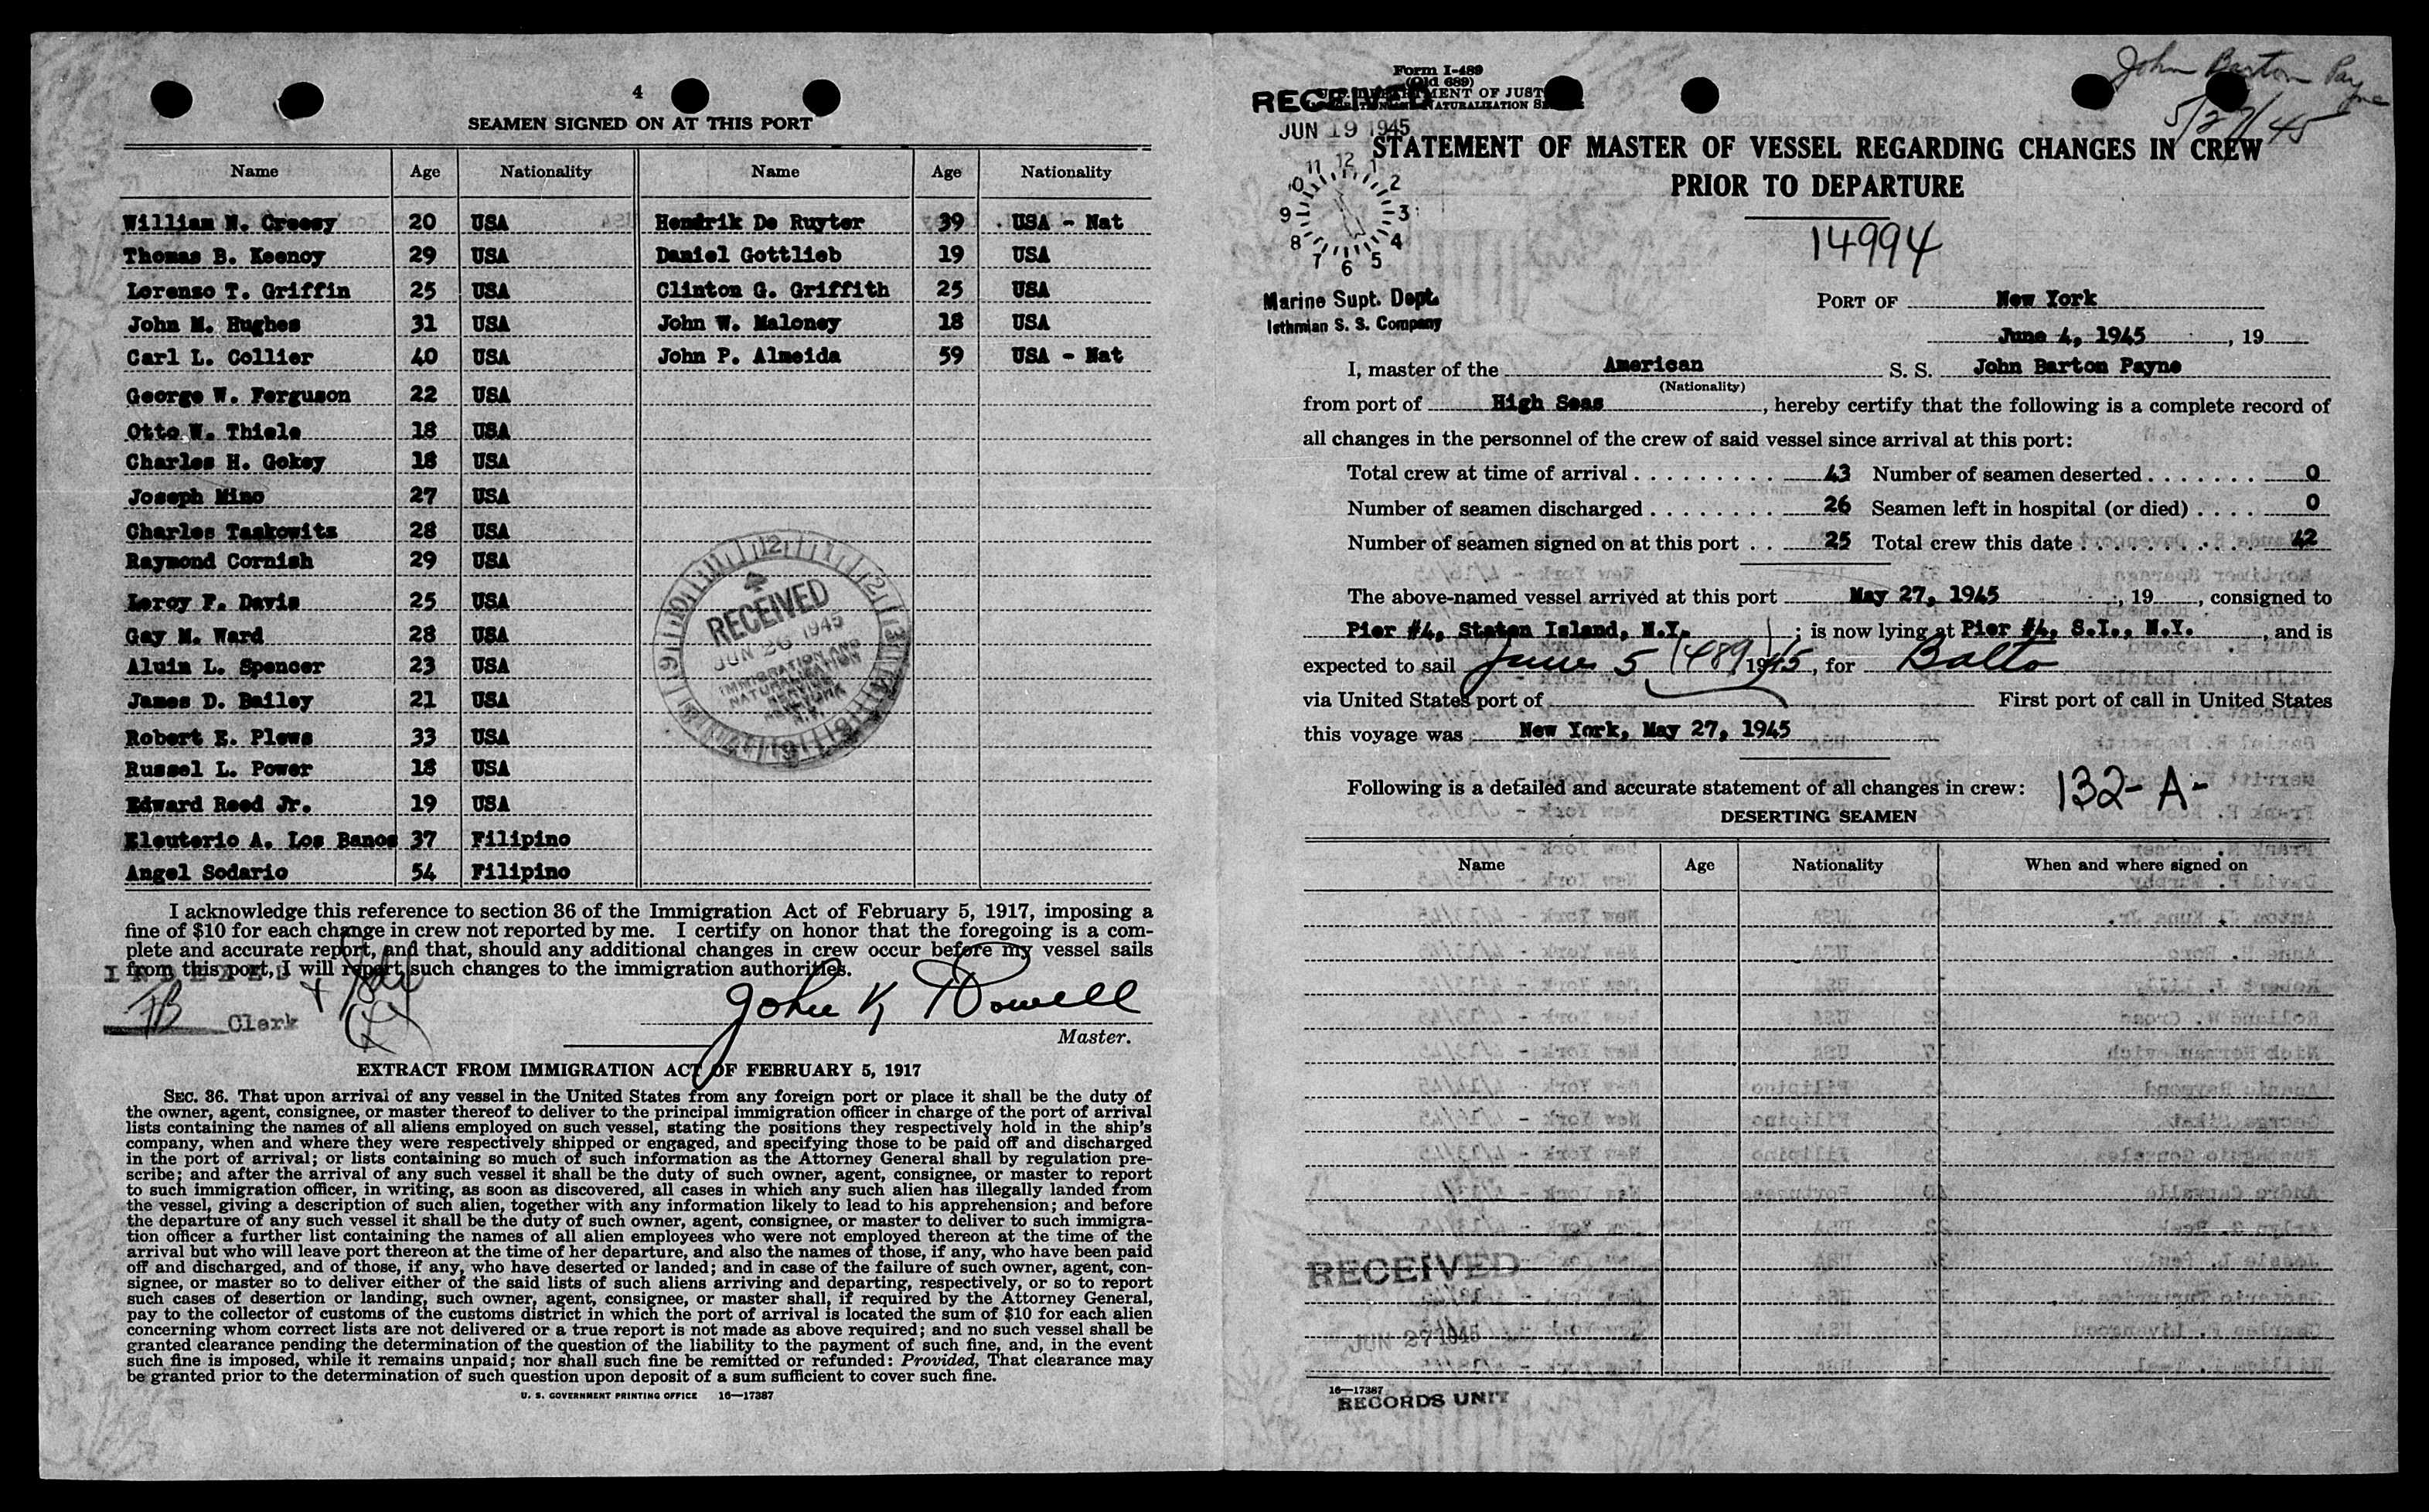 4
SEAMEN SIGNED ON AT THIS PORT
Name Age Nationality Name Age Nationality
William N. Creesy 20 USA Hendrik De Ruyter 39 USA - Nat
Thomas B. Keenoy 29 USA Daniel Gottlieb 19 USA
Lorenzo T. Griffin 25 USA Clinton G. Griffith 25 USA
John M. Hughes 31 USA John W. Maloney 18 USA
Carl L. Collier 40 USA John P. Almeida 59 USA - Nat
George W. Ferguson 22 USA
Otto W. Thiele 18 USA
Charles H. Gokey 18 USA
Joseph Mino 27 USA
Charles Taskowitz 28 USA
Raymond Cornish 29 USA
Leroy F. Davis 25 USA
Gay M. Ward 28 USA
Aluin L. Spencer 23 USA
James D. Bailey 21 USA
Robert E. Plews 33 USA
Russel L. Power 18 USA
Edward Reed Jr. 19 USA
Eleuterio A. Los Banos 37 Filipino
Angel Sodario 54 Filipino
RECEIVED
JUN 26 1945
IMMIGRATION AND
NATURALIZATION
SERVICE
NEW YORK
N.Y.
I acknowledge this reference to section 36 of the Immigration Act of February 5, 1917, imposing a
fine of $10 for each change in crew not reported by me. I certify on honor that the foregoing is a com-
plete and accurate report, and that, should any additional changes in crew occur before my vessel sails
from this port, I will report such changes to the immigration authorities.
INDEXED
Clerk
John K Powell
Master.
EXTRACT FROM IMMIGRATION ACT OF FEBRUARY 5, 1917
SEC. 36. That upon arrival of any vessel in the United States from any foreign port or place it shall be the duty of
the owner, agent, consignee, or master thereof to deliver to the principal immigration officer in charge of the port of arrival
lists containing the names of all aliens employed on such vessel, stating the positions they respectively hold in the ship's
company, when and where they were respectively shipped or engaged, and specifying those to be paid off and discharged
in the port of arrival; or lists containing so much of such information as the Attorney General shall by regulation pre-
scribe; and after the arrival of any such vessel it shall be the duty of such owner, agent, consignee, or master to report
to such immigration officer, in writing, as soon as discovered, all cases in which any such alien has illegally landed from
the vessel, giving a description of such alien, together with any information likely to lead to his apprehension; and before
the departure of any such vessel it shall be the duty of such owner, agent, consignee, or master to deliver to such immigra-
tion officer a further list containing the names of all alien employees who were not employed thereon at the time of the
arrival but who will leave port thereon at the time of her departure, and also the names of those, if any, who have been paid
off and discharged, and of those, if any, who have deserted or landed; and in case of the failure of such owner, agent, con-
signee, or master so to deliver either of the said lists of such aliens arriving and departing, respectively, or so to report
such cases of desertion or landing, such owner, agent, consignee, or master shall, if required by the Attorney General,
pay to the collector of customs of the customs district in which the port of arrival is located the sum of $10 for each alien
concerning whom correct lists are not delivered or a true report is not made as above required; and no such vessel shall be
granted clearance pending the determination of the question of the liability to the payment of such fine, and, in the event
such fine is imposed, while it remains unpaid; nor shall such fine be remitted or refunded: Provided, That clearance may
be granted prior to the determination of such question upon deposit of a sum sufficient to cover such fine.
U. S. GOVERNMENT PRINTING OFFICE 16—17387
Form I-489
(Old 689)
RECEIVED
JUN 19 1945
12 1 2 3 4 5 6 7 8 9 10 11
Marine Supt. Dept.
Isthmian S. S. Company
John Barton Payne
5/27/45
STATEMENT OF MASTER OF VESSEL REGARDING CHANGES IN CREW
PRIOR TO DEPARTURE
14994
PORT OF New York
June 4, 1945, 19
I, master of the American S. S. John Barton Payne
(Nationality)
from port of High Seas, hereby certify that the following is a complete record of
all changes in the personnel of the crew of said vessel since arrival at this port:
Total crew at time of arrival 43 Number of seamen deserted 0
Number of seamen discharged 26 Seamen left in hospital (or died) 0
Number of seamen signed on at this port 25 Total crew this date 42
The above-named vessel arrived at this port May 27, 1945, 19, consigned to
Pier #4, Staten Island, N.Y.; is now lying at Pier #4, S.I., N.Y., and is
expected to sail June 5 1945, for Balto
via United States port of First port of call in United States
this voyage was New York, May 27, 1945
Following is a detailed and accurate statement of all changes in crew: 132-A-
DESERTING SEAMEN
Name Age Nationality When and where signed on
RECEIVED
JUN 27 1945
16—17387
RECORDS UNIT